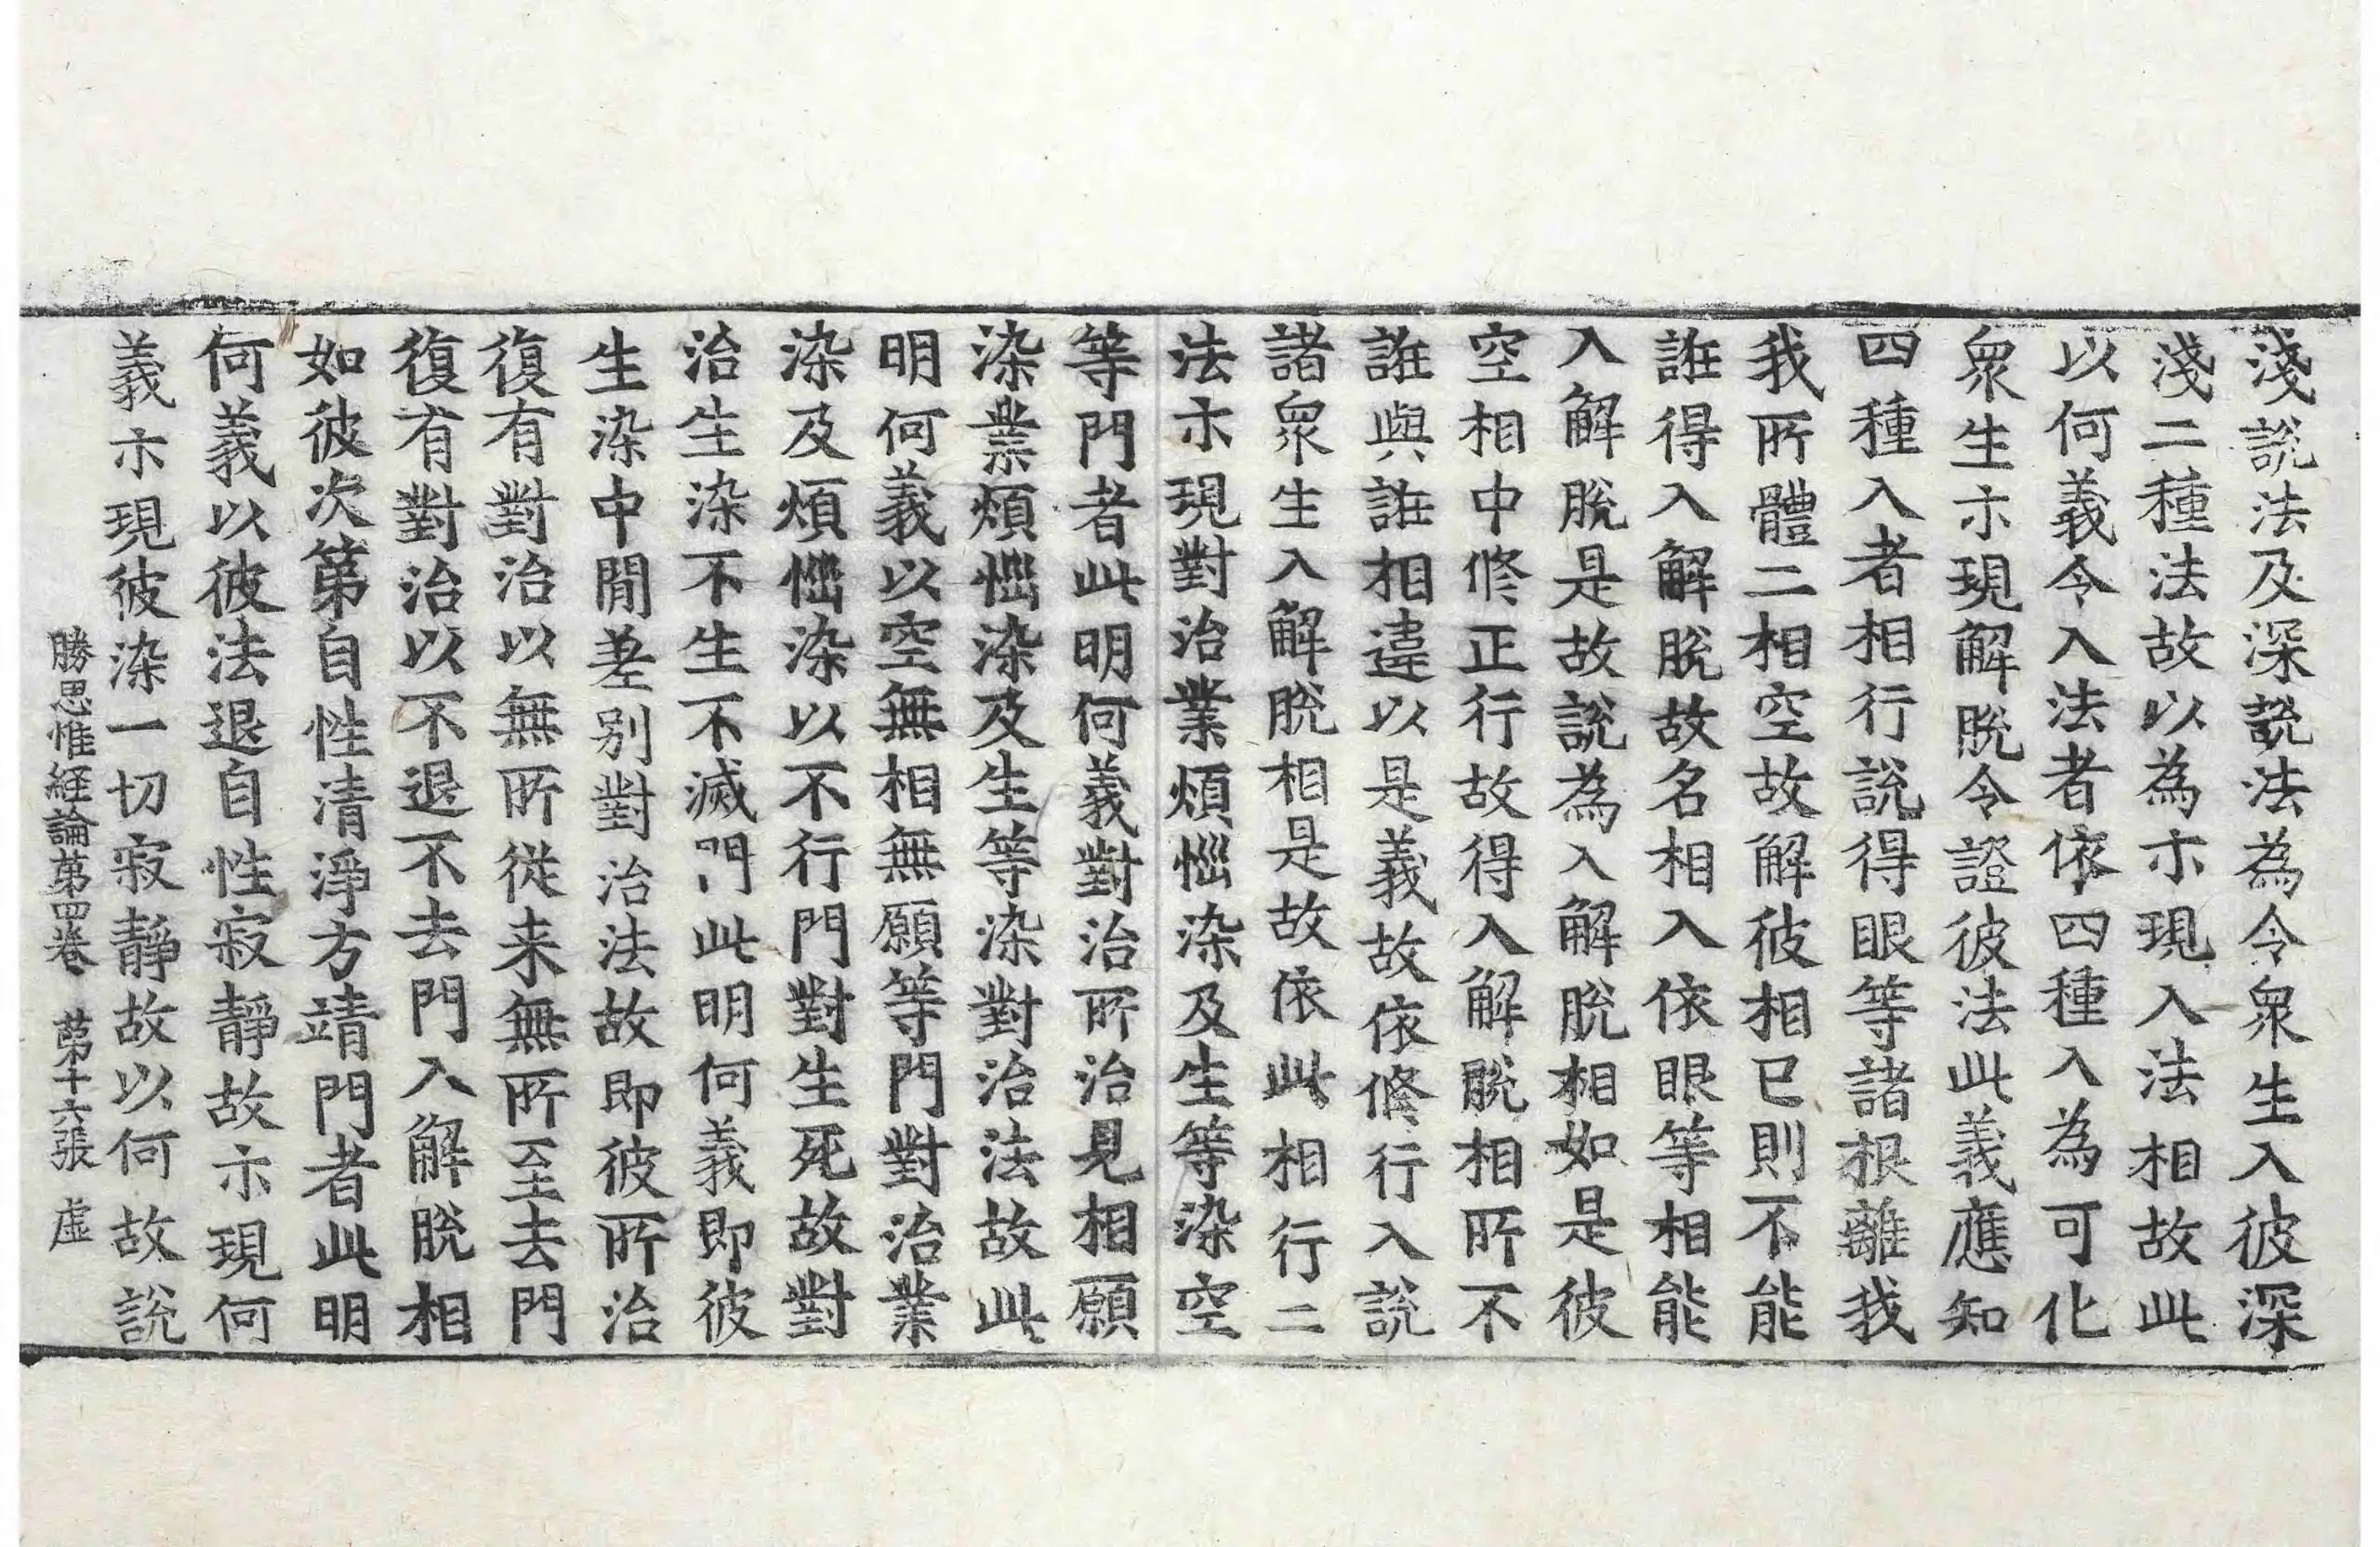 淺說法及深說法為令衆生入彼深
淺二種法故以為示現入法相故此
以何義令入法者依四種入為可化
衆生示現解脫令證彼法此義應知
四種入者相行說得眼等諸根離我
我所體二相空故解彼相已則不能
誰得入解脫故名相入依眼等相能
入解脫是故說為入解脫相如是彼
空相中修正行故得入解脫相所不
誰與誰相違以是義故依修行入說
諸衆生入解脫相是故依此相行二
法示現對治業煩惱染及生等染空
等門者此明何義對治所治見相願
染業煩惱染及生等染對治法故此
明何義以空無相無願等門對治業
染及煩惱染以不行門對生死故對
治生染不生不滅門此明何義即彼
生染中閒差別對治法故即彼所治
復有對治以無所從来無所至去門
復有對治以不退不去門入解脫相
如彼次第自性清淨方靖門者此明
何義以彼法退自性寂靜故示現何
義示現彼染一切寂靜故以何故說
勝思惟経論苐四卷 苐十六張 虛